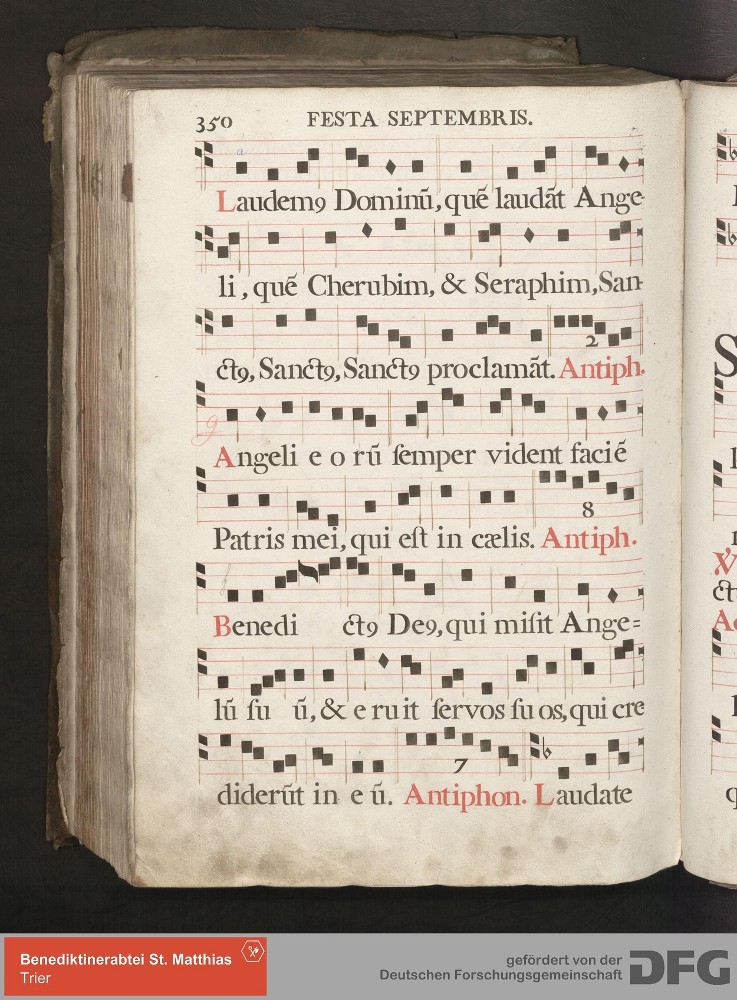 350 FESTA SEPTEMBRIS.
Laudemꝯ Dominū, quē laudāt Ange-
li, quē Cherubim, & Seraphim, San-
ctꝯ, Sanctꝯ, Sanctꝯ proclamāt. Antiph.
2
Angeli e o rū ſemper vident faciē
Patris mei, qui eſt in cælis. Antiph.
8
Benedi ctꝯ Deꝯ, qui miſit Ange=
lū ſu ū, & e ru it ſervos ſu os, qui cre
diderūt in e ū. Antiphon. Laudate
7
Benediktinerabtei St. Matthias
Trier
gefördert von der
Deutschen Forschungsgemeinschaft
DFG